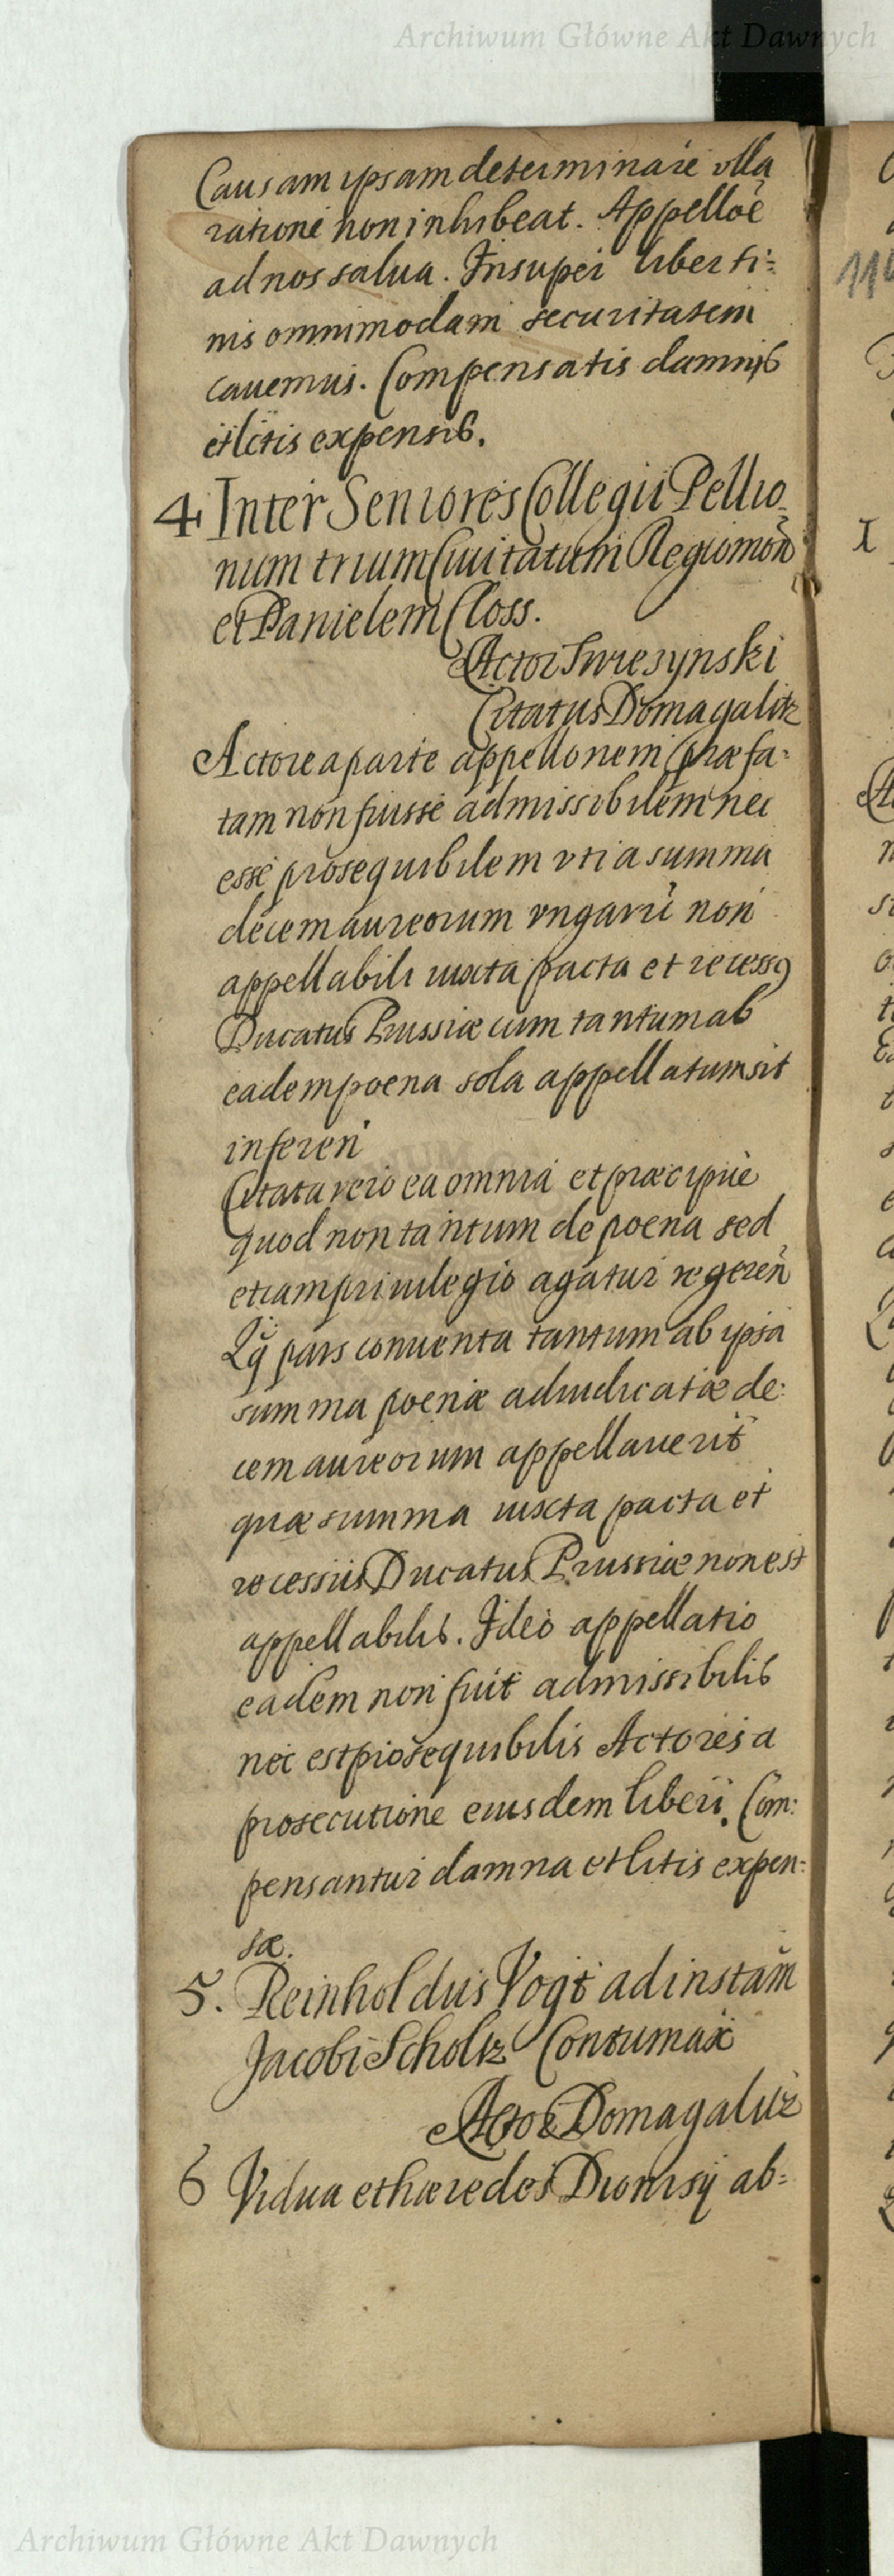 Archiwum Główne Akt Dawnych
Causam ipsam determinare ulla
ratione non inhibeat. Appelloe
ad nos salua. Insuper liberti=
nis omnimodam securitatem
cauemus. Compensatis damnis
et litis expensis.
4 Inter Seniores Collegii Pellio
num trium Ciuitatum Regiomon
et Danielem Closs.
Actor Swiesynski
Citatus Domagalitz
Actorea parte appellonem præfa=
tam non fuisse admissibilem nec
esse prosequibilem vti a summa
decem aureorum vngarū non
appellabili iuxta pacta et recess9
Ducatus Prussiæ cum tantum ab
eadem poena sola appellatum sit
inferen
Citata vero ea omnia et præcipue
quod non tantum de poena sed
etiam priuilegio agatur regeren
Qq pars conuenta tantum ab ipsa
summa poenæ adiudicatæ de=
cem aureorum appellauerit
quæ summa iuxta pacta et
recessus Ducatus Prussiæ non est
appellabilis. Ideo appellatio
eadem non fuit admissibilis
nec est prosequibilis Actores a
prosecutione eiusdem liberi. Com=
pensantur damna et litis expen=
sæ.
5. Reinholdus Vogt ad instam
Jacobi Scholtz Contumax
Actor Domagalitz
6 Vidua et hæredes Dionisy ab=
116
I
Archiwum Główne Akt Dawnych